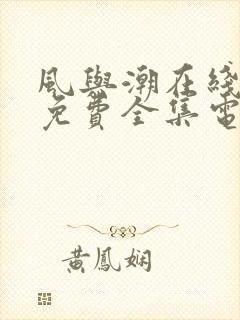 風與潮在綫
免費全集電
黃鳳嫻